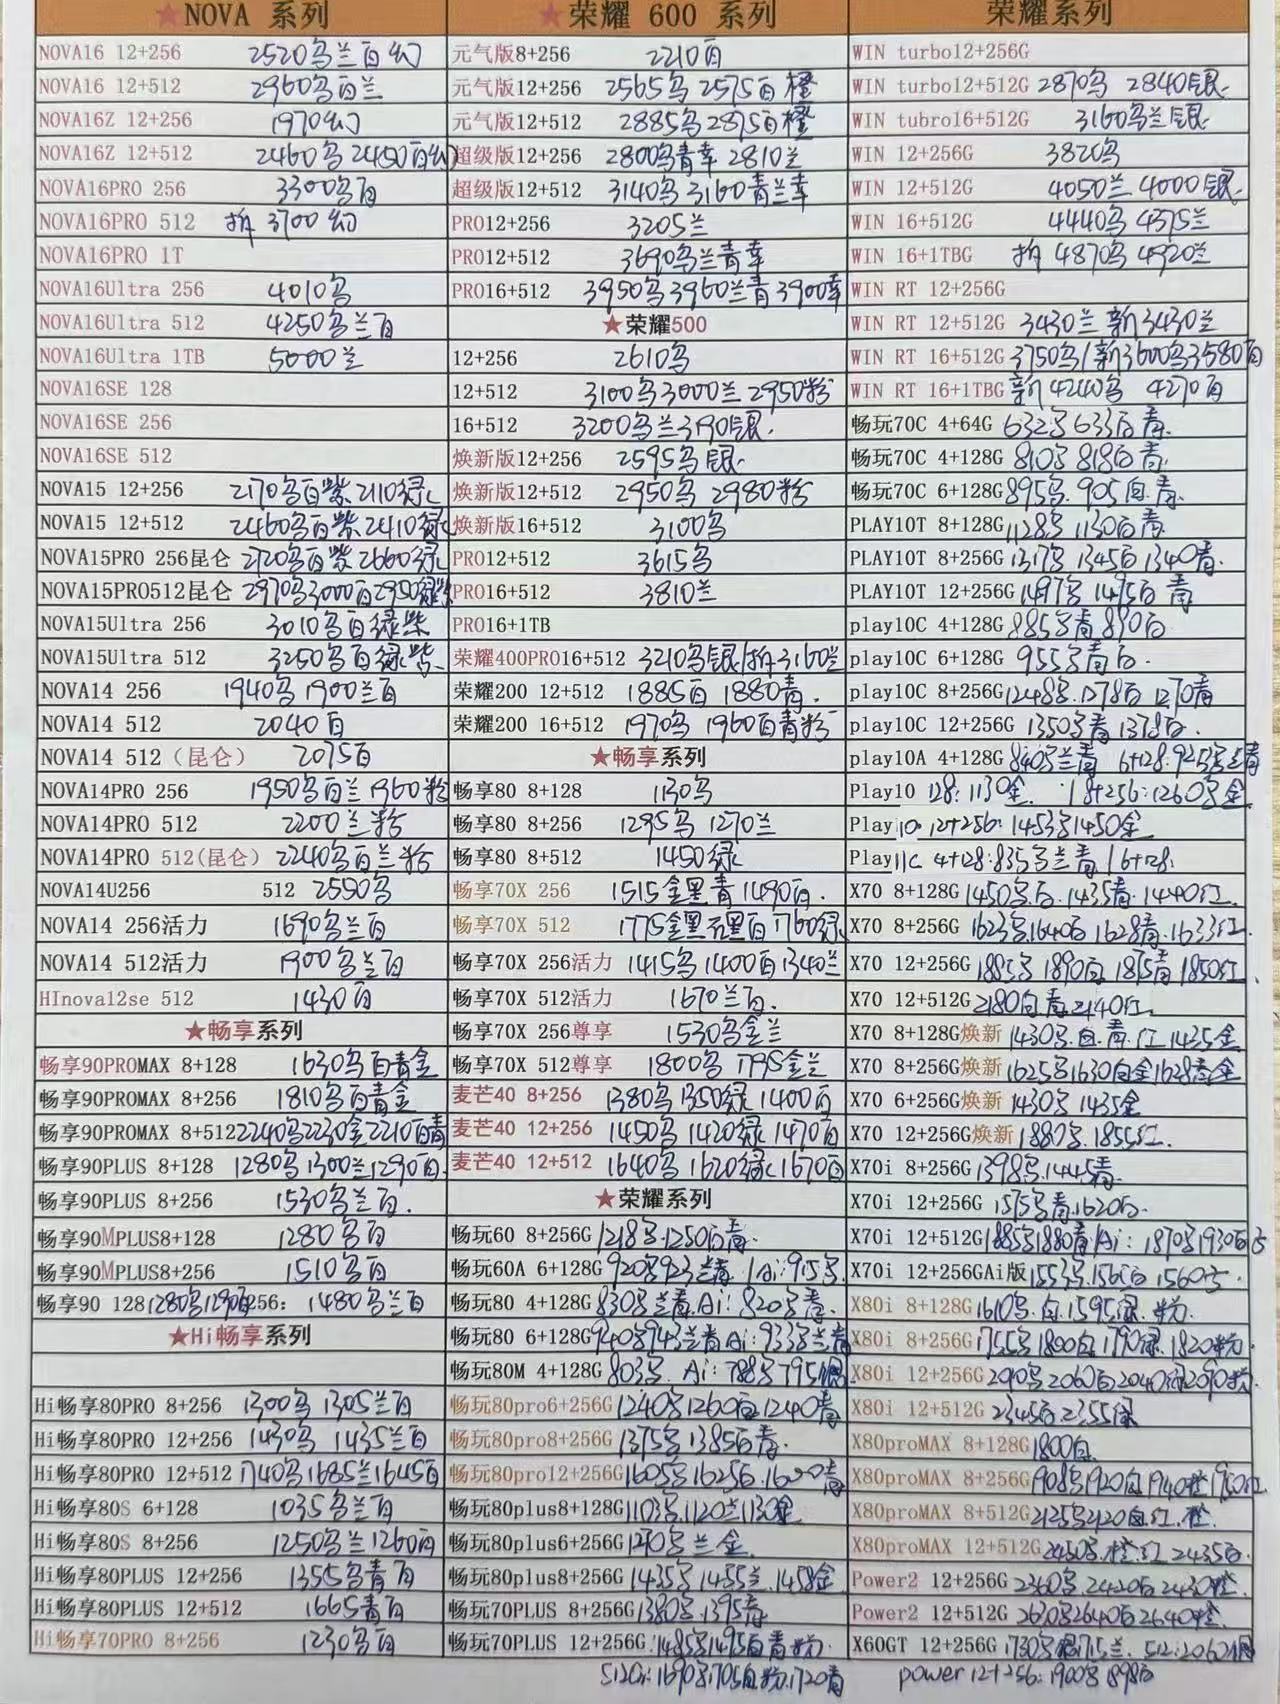 ★NOVA 系列
NOVA16 12+256 2520乌兰白幻
NOVA16 12+512 2960乌白兰
NOVA16Z 12+256 1970幻
NOVA16Z 12+512 2460乌 2450白幻
NOVA16PRO 256 3300乌白
NOVA16PRO 512 拆 3700 幻
NOVA16PRO 1T
NOVA16Ultra 256 4010乌
NOVA16Ultra 512 4250乌兰白
NOVA16Ultra 1TB 5000兰
NOVA16SE 128
NOVA16SE 256
NOVA16SE 512
NOVA15 12+256 2170乌白紫 2110绿
NOVA15 12+512 2460乌白紫 2410绿
NOVA15PRO 256昆仑 2720乌白紫 2660绿
NOVA15PRO512昆仑 2970乌3000白2950绿紫
NOVA15Ultra 256 3010乌白绿紫
NOVA15Ultra 512 3250乌白绿紫
NOVA14 256 1940乌 1900兰白
NOVA14 512 2040白
NOVA14 512（昆仑） 2075白
NOVA14PRO 256 1950乌白兰 1960粉
NOVA14PRO 512 2200兰粉
NOVA14PRO 512(昆仑） 2240乌白兰粉
NOVA14U256 512 2550乌
NOVA14 256活力 1690乌兰白
NOVA14 512活力 1900乌兰白
HInova12se 512 1430白
★畅享系列
畅享90PROMAX 8+128 1630乌白青金
畅享90PROMAX 8+256 1810乌白青金
畅享90PROMAX 8+512 2240乌2230金2210白青
畅享90PLUS 8+128 1280乌 1300兰1290白
畅享90PLUS 8+256 1530乌兰白
畅享90MPLUS8+128 1280乌白
畅享90MPLUS8+256 1510乌白
畅享90 128 1280乌1290白 256: 1480乌兰白
★Hi畅享系列
Hi畅享80PRO 8+256 1300乌 1305兰白
Hi畅享80PRO 12+256 1430乌 1435兰白
Hi畅享80PRO 12+512 1740乌1685兰1645白
Hi畅享80S 6+128 1035乌兰白
Hi畅享80S 8+256 1250乌兰1260白
Hi畅享80PLUS 12+256 1355乌青白
Hi畅享80PLUS 12+512 1665青白
Hi畅享70PRO 8+256 1230乌白
★荣耀 600 系列
元气版8+256 2210白
元气版12+256 2565乌 2575白橙
元气版12+512 2885乌2875白橙
超级版12+256 2800乌青幸 2810兰
超级版12+512 3140乌 3160青兰幸
PRO12+256 3205兰
PRO12+512 3690乌兰青幸
PRO16+512 3950乌3960兰青3900幸
★荣耀500
12+256 2610乌
12+512 3100乌3000兰 2950粉
16+512 3200乌兰3190银
焕新版12+256 2595乌银
焕新版12+512 2950乌 2980粉
焕新版16+512 3100乌
PRO12+512 3615乌
PRO16+512 3810兰
PRO16+1TB
荣耀400PRO16+512 3210乌银/拆3160兰
荣耀200 12+512 1885白 1880青
荣耀200 16+512 1970乌 1960白青粉
★畅享系列
畅享80 8+128 1130乌
畅享80 8+256 1295乌 1270兰
畅享80 8+512 1450绿
畅享70X 256 1515金黑青 1490白
畅享70X 512 1775金黑 白1760绿
畅享70X 256活力 1415乌1400白1340兰
畅享70X 512活力 1670兰白
畅享70X 256尊享 1530乌金兰
畅享70X 512尊享 1800乌 1795金兰
麦芒40 8+256 1380乌1350绿 1400白
麦芒40 12+256 1450乌 1420绿 1470白
麦芒40 12+512 1640乌 1620绿1670白
★荣耀系列
畅玩60 8+256G 1218乌1250白青
畅玩60A 6+128G 920乌923兰青 /Ai:915乌
畅玩80 4+128G 830乌兰青 Ai:820乌青
畅玩80 6+128G 940乌943兰青 Ai:933乌兰青
畅玩80M 4+128G 803乌 Ai:788乌795银
畅玩80pro6+256G 1240乌1260白1240青
畅玩80pro8+256G 1375乌1385白青
畅玩80pro12+256G 1605乌1625白1600青
畅玩80plus8+128G 1103乌1120兰1130金
畅玩80plus6+256G 1210乌兰金
畅玩80plus8+256G 1435乌1455兰1458金
畅玩70PLUS 8+256G 1380乌1395青
畅玩70PLUS 12+256G 1485乌1495白青粉
512G:1690乌1705白粉1720青
荣耀系列
WIN turbo12+256G
WIN turbo12+512G 2870乌 2840银
WIN tubro16+512G 3160乌兰银
WIN 12+256G 3820乌
WIN 12+512G 4050兰 4000银
WIN 16+512G 4440乌 4375兰
WIN 16+1TBG 拆 4870乌 4920兰
WIN RT 12+256G
WIN RT 12+512G 3430兰 新3430兰
WIN RT 16+512G 3750乌/新3600乌3580白
WIN RT 16+1TBG 新4240乌 4270白
畅玩70C 4+64G 632乌633白青
畅玩70C 4+128G 810乌818白青
畅玩70C 6+128G 895乌 905白青
PLAY10T 8+128G 1128乌 1130白青
PLAY10T 8+256G 1317乌1345白1340青
PLAY10T 12+256G 1497乌1495白青
play10C 4+128G 885乌青890白
play10C 6+128G 955乌青白
play10C 8+256G 1248乌1278白1270青
play10C 12+256G 1350乌青1378白
play10A 4+128G 840乌兰青 6+128:925乌兰青
Play10 128:1130金 8+256:1260乌金
Play10 12+256:1453乌1450金
Play11C 4+128:835乌兰青 6+128:
X70 8+128G 1450乌白1435青1440红
X70 8+256G 1623乌1640白1628青1633红
X70 12+256G 1885乌1890白1875青1850红
X70 12+512G 2180白青2140红
X70 8+128G焕新 1430乌白青红1435金
X70 8+256G焕新 1625乌1630白金1628青金
X70 6+256G焕新 1430乌1435金
X70 12+256G焕新 1880乌1855红
X70i 8+256G 1398乌1445青
X70i 12+256G 1575乌青1620白
X70i 12+512G 1885乌1880青/Ai:1870乌1930白
X70i 12+256GAi版 1553乌1565白1560
X80i 8+128G 1610乌白1595绿粉
X80i 8+256G 1755乌1800白1790绿1820粉
X80i 12+256G 2010乌2060白2040绿2090粉
X80i 12+512G 2345白2355绿
X80proMAX 8+128G 1800白
X80proMAX 8+256G 1908乌1920白1940橙1950红
X80proMAX 8+512G 2125乌2120白红橙
X80proMAX 12+512G 2450乌橙红2435白
Power2 12+256G 2360乌2420白2430橙
Power2 12+512G 2630乌2640白2640橙
X60GT 12+256G 1730乌银1715兰 512:2060银
power 12+256:1900乌1898白